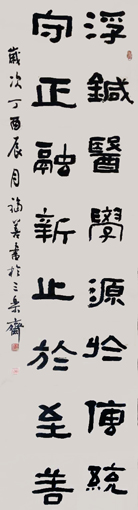 浮鍼醫學源於傳統
守正融新止於至善
歲次丁酉辰月福美書於三樂齋